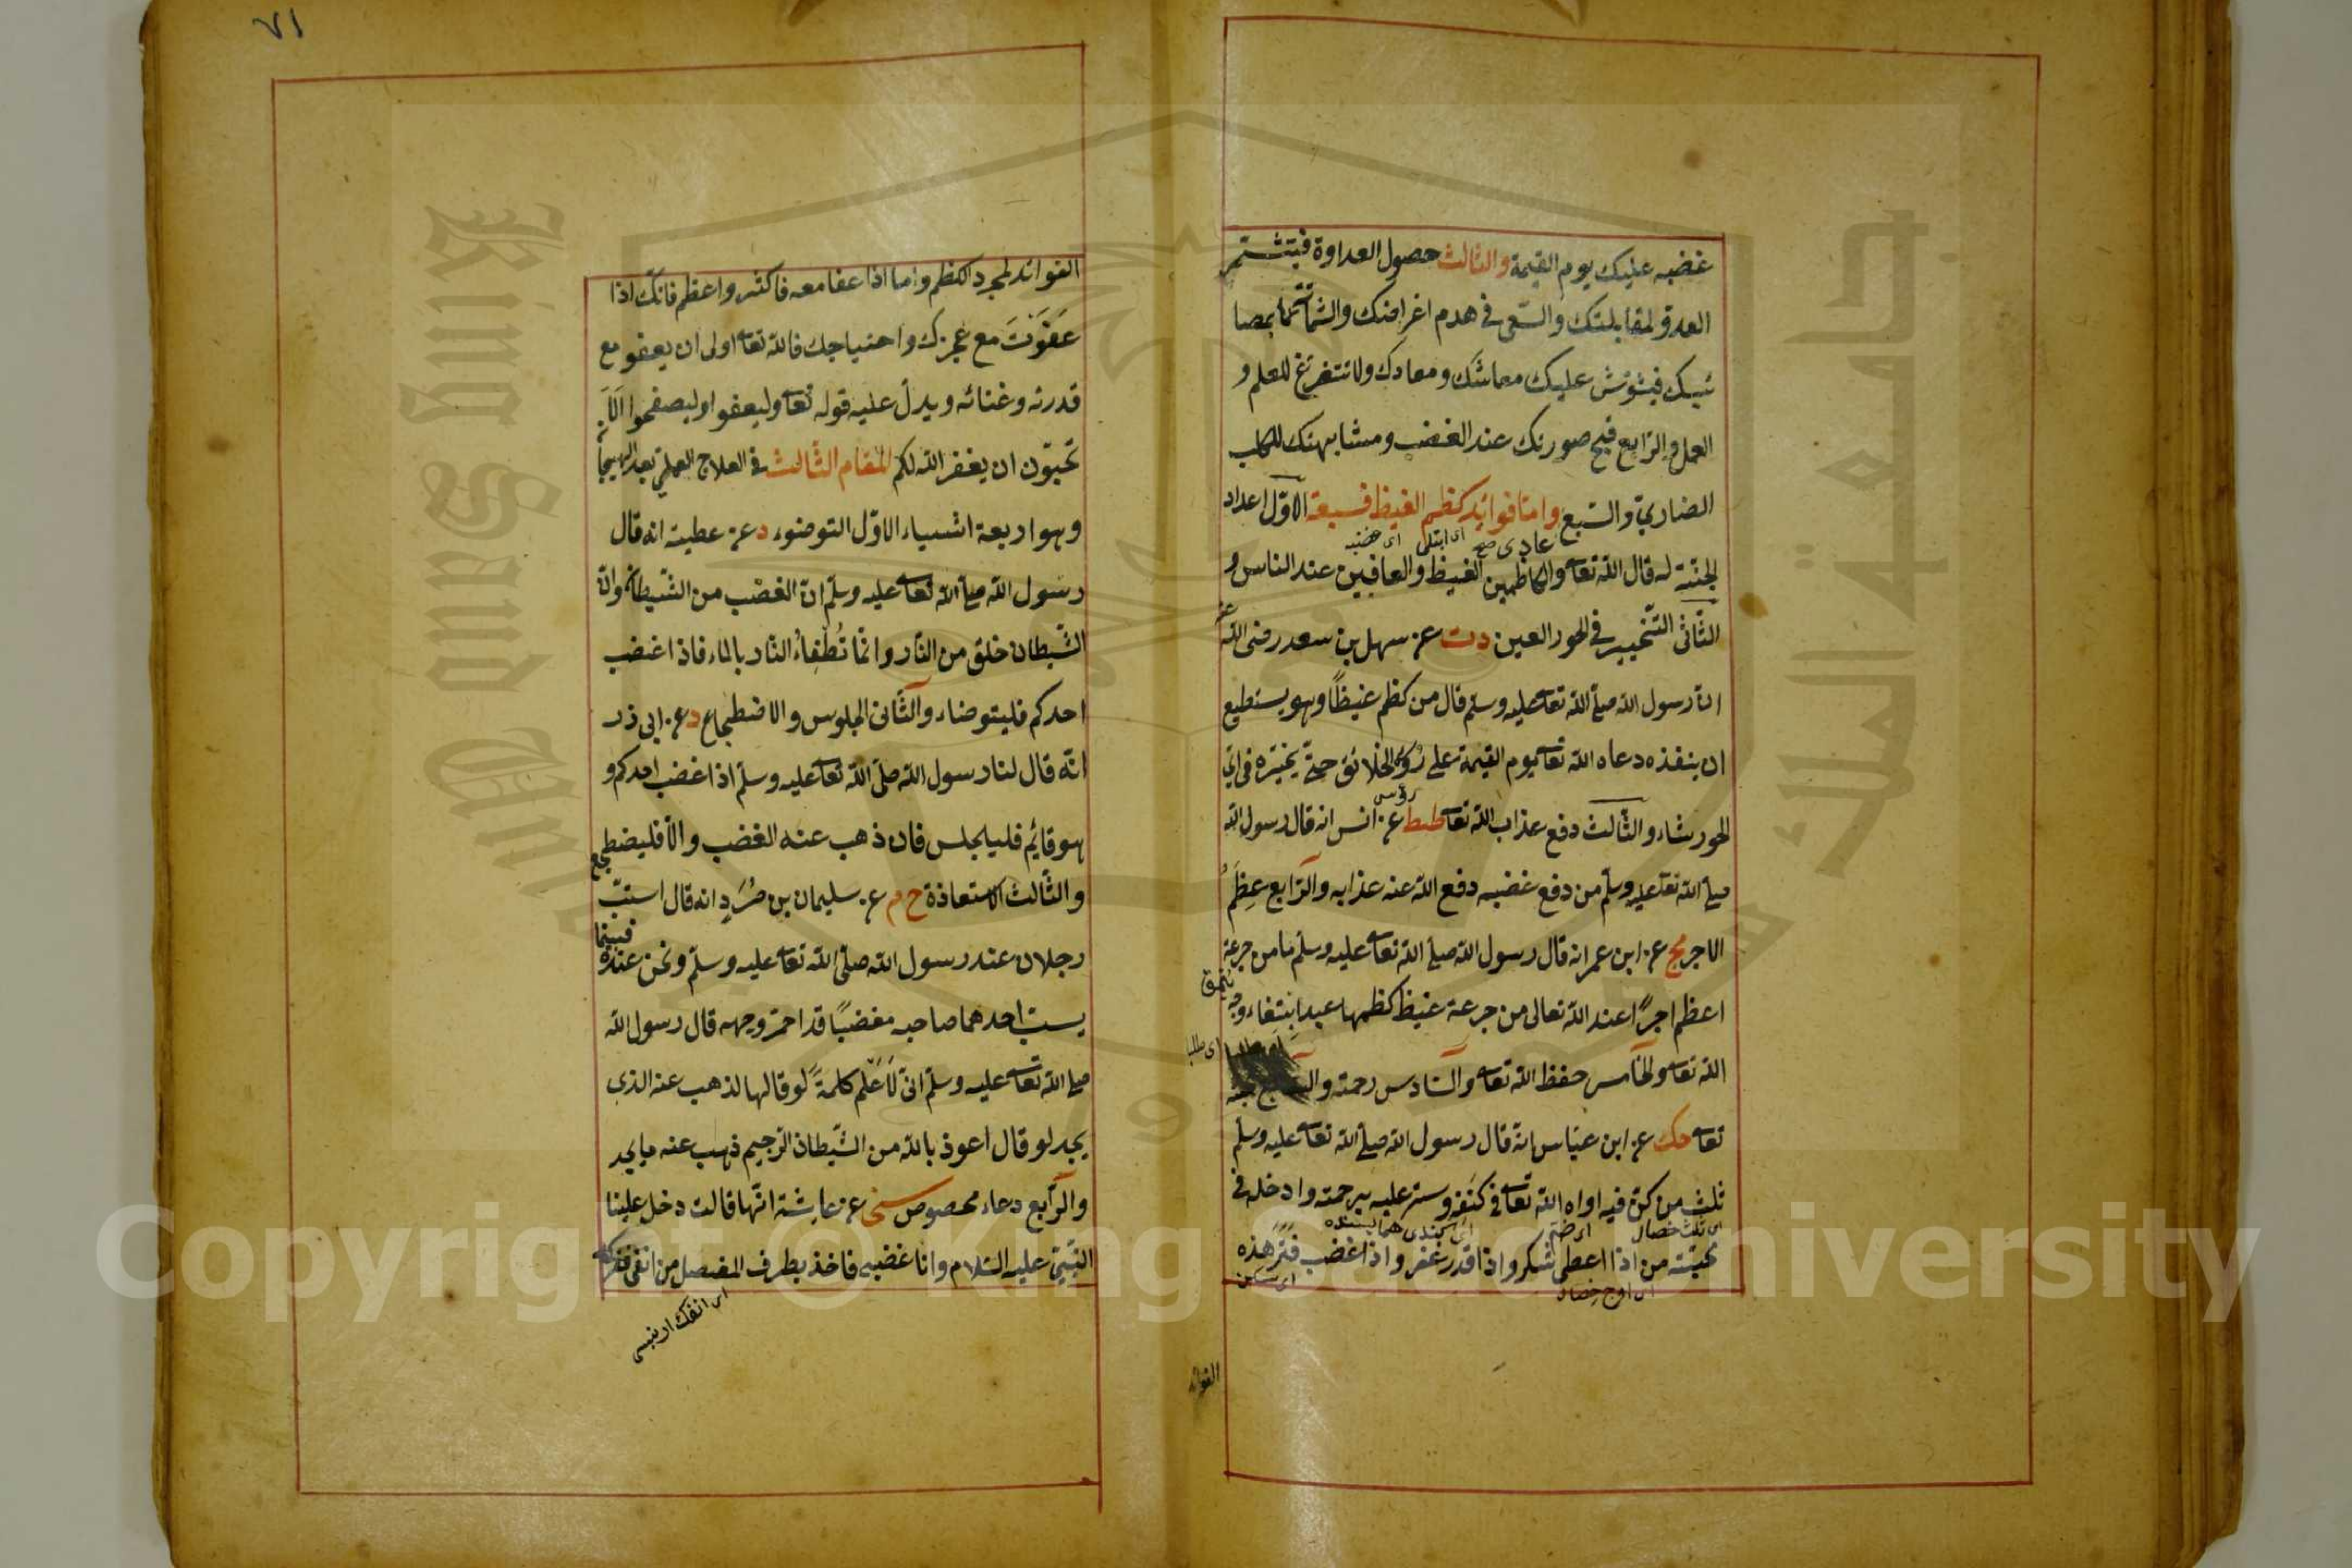 غضبه عليك يوم القيمة والثالث حصول العداوة فيتشمر
العدو لمقابلتك والسّعى فى هدم اغراضك والشماتة بمصا
ئبك فيشوش عليك معاشك ومعادك ولا تتفرغ للعلم و
العمل والرابع قبح صورتك عند الغضب ومشابهتك للكلب
الضاري والسّبع وامّا فوائد كظم الغيظ فسبعة الاوّل اعداد
الجنّة له قال الله تعا والكاظمين الغيظ والعافين عند الناس و
الثّانى التّخيير فى الحور العين دت عن سهل بن سعد رضى الله عنه
انّ رسول الله صلى الله تعا عليه وسلم قال من كظم غيظاً وهو يستطيع
ان ينفذه دعاه الله تعا يوم القيمة على رؤس الخلائق حتّى يخيّره فى اىّ
رؤس
الحور شاء والثّالث دفع عذاب الله تعا طط عن انس انه قال رسول الله
صلى الله تعا عليه وسلم من دفع غضبه دفع الله عنه عذابه والرّابع عِظَمُ
الاجر مج عن ابن عمر انه قال رسول الله صلى الله تعا عليه وسلّم ما من جرعة
اعظم اجرًا عند الله تعالى من جرعة غيظ كظمها عبد ابتغاء وجه
اى طلبا
الله تعا والخامس حفظ الله تعا والسّادس رحمته والسابع محبته
تعا حك عن ابن عبّاس انّه قال رسول الله صلى الله تعا عليه وسلّم
ثلث من كنّ فيه اواه الله تعا فى كنفه وستر عليه برحمته وادخله فى
اى ثلث خصال
محبّته من اذا اعطى شكر واذا قدر غفر واذا غضب فَتَرَ هذه
اى سكن
الفوائد
٧١
الفوائد لمجرد الكظم واما اذا عفا معه فاكثر واعظم فانّك اذا
عَفَوْتَ مع عجزك واحتياجك فالله تعا اولى ان يعفو مع
قدرته وغنائه ويدلّ عليه قوله تعا وليعفوا وليصفحوا اَلاَ
تحبّون ان يغفر الله لكم المقام الثّالث فى العلاج العملى بعد الهيجان
وهو اربعة اشياء الاوّل التوضوء د عن عطية انه قال
رسول الله صلى الله تعا عليه وسلّم انّ الغضب من الشّيطان وانّ
الشّيطان خلق من النّار وانّما تُطْفِاءُ النّار بالماء فاذا غضب
احدكم فليتوضاء والثّانى الجلوس والاضطجاع د عن ابى ذر
انّه قال لنا رسول الله صلّى الله تعا عليه وسلّم اذا غضب احدكم و
هو قائم فليجلس فان ذهب عنه الغضب والاّ فليضطجع
والثّالث الاستعاذة خ م عن سليمان بن صُرَدٍ انه قال استبّ
رجلان عند رسول الله صلّى الله تعا عليه وسلّم ونحن عنده فبينما
يسبّ احدهما صاحبه مغضبًا قد احمرّ وجهه قال رسول الله
صلى الله تعا عليه وسلّم انّى لَاَعْلم كلمةً لو قالها لذهب عنه الذى
يجد لو قال اعوذ بالله من الشّيطان الرّجيم ذهب عنه ما يجد
والرّابع دعاء مخصوص سنى عن عايشة انّها قالت دخل علينا
النّبىّ عليه السّلام وانا غضبى فاخذ بطرف المفصل من انفى ففركه
Copyright © King Saud University
King Saud University
جامعة الملك